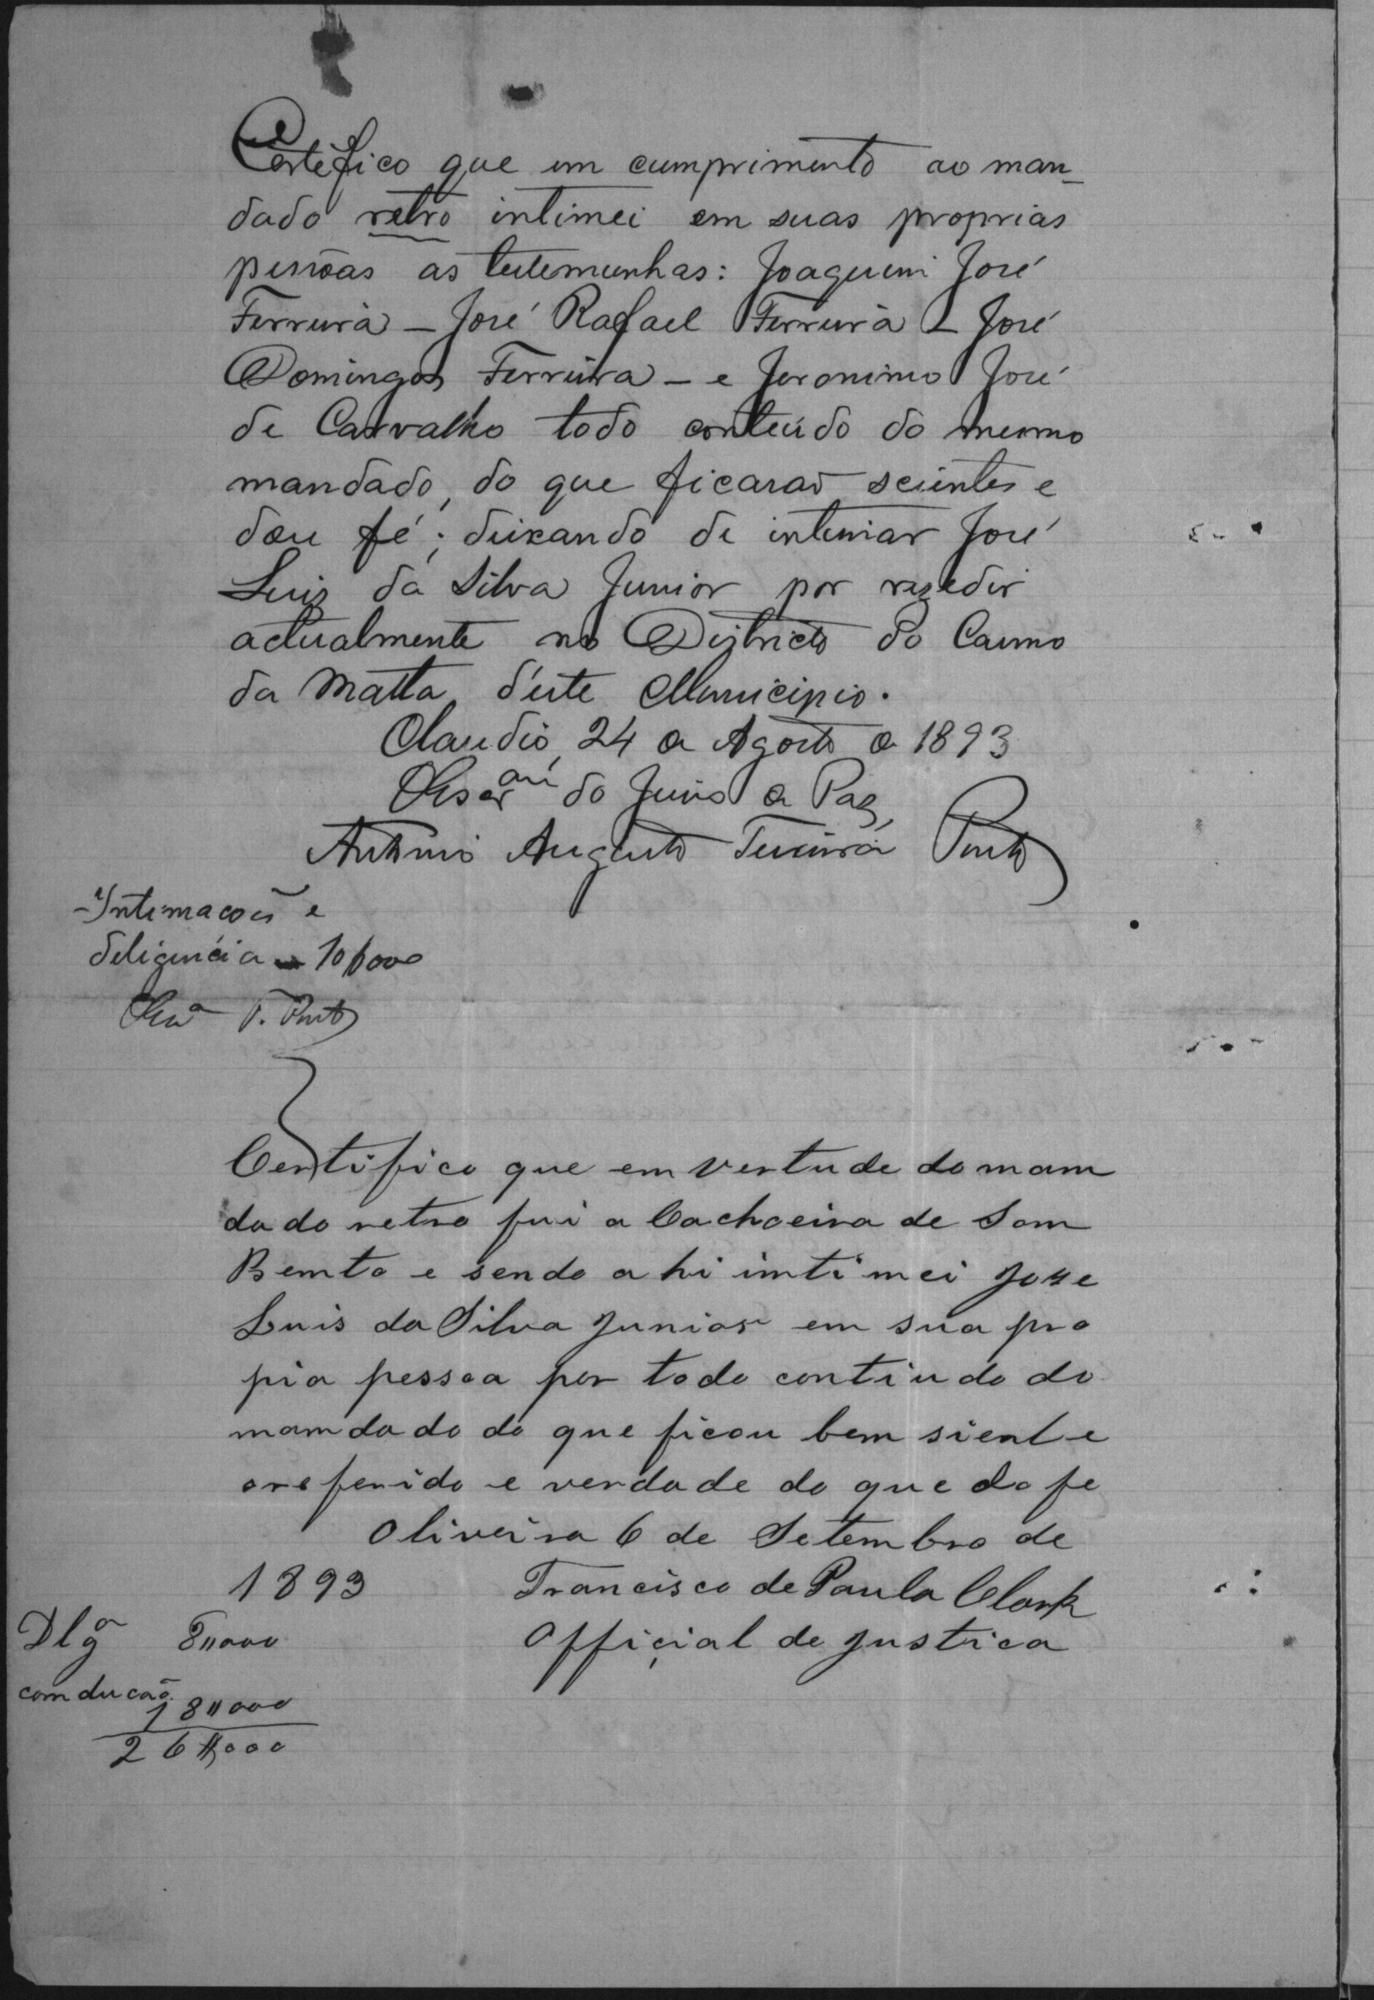 Certefico que em cumprimento ao man-
dado retro intimei em suas proprias
pessôas as testemunhas: Joaquim José
Ferreira - José Rafael Ferreira - José
Domingos Ferreira - e Jeronimo José
de Carvalho todo conteúdo do mesmo
mandado, do que ficarão scientes e
dou fé; deixando de intimar José
Luiz da Silva Junior por rezedir
actualmente no Districto do Carmo
da Matta, d'este Municipio.
Claudio, 24 de Agosto de 1893
O Escram do Juiso de Paz,
Antonio Augusto Teixeira Porto
Intimações e
deligencia - 10$000
T. Porto
Certifico que em vertude do mam
dado retro fui a Cachoeira de Som
Bemto e sendo ahi imtimei Joze
Luis da Silva Junior em sua pro
pia pessoa por todo contiudo do
mamdado do que ficou bem siente
o referido e verdade do que do fe
Oliveira 6 de Setembro de
1893 Francisco de Paula Clark
Official de Justica
Dlgª 8$000
comducão
18$000
26$000